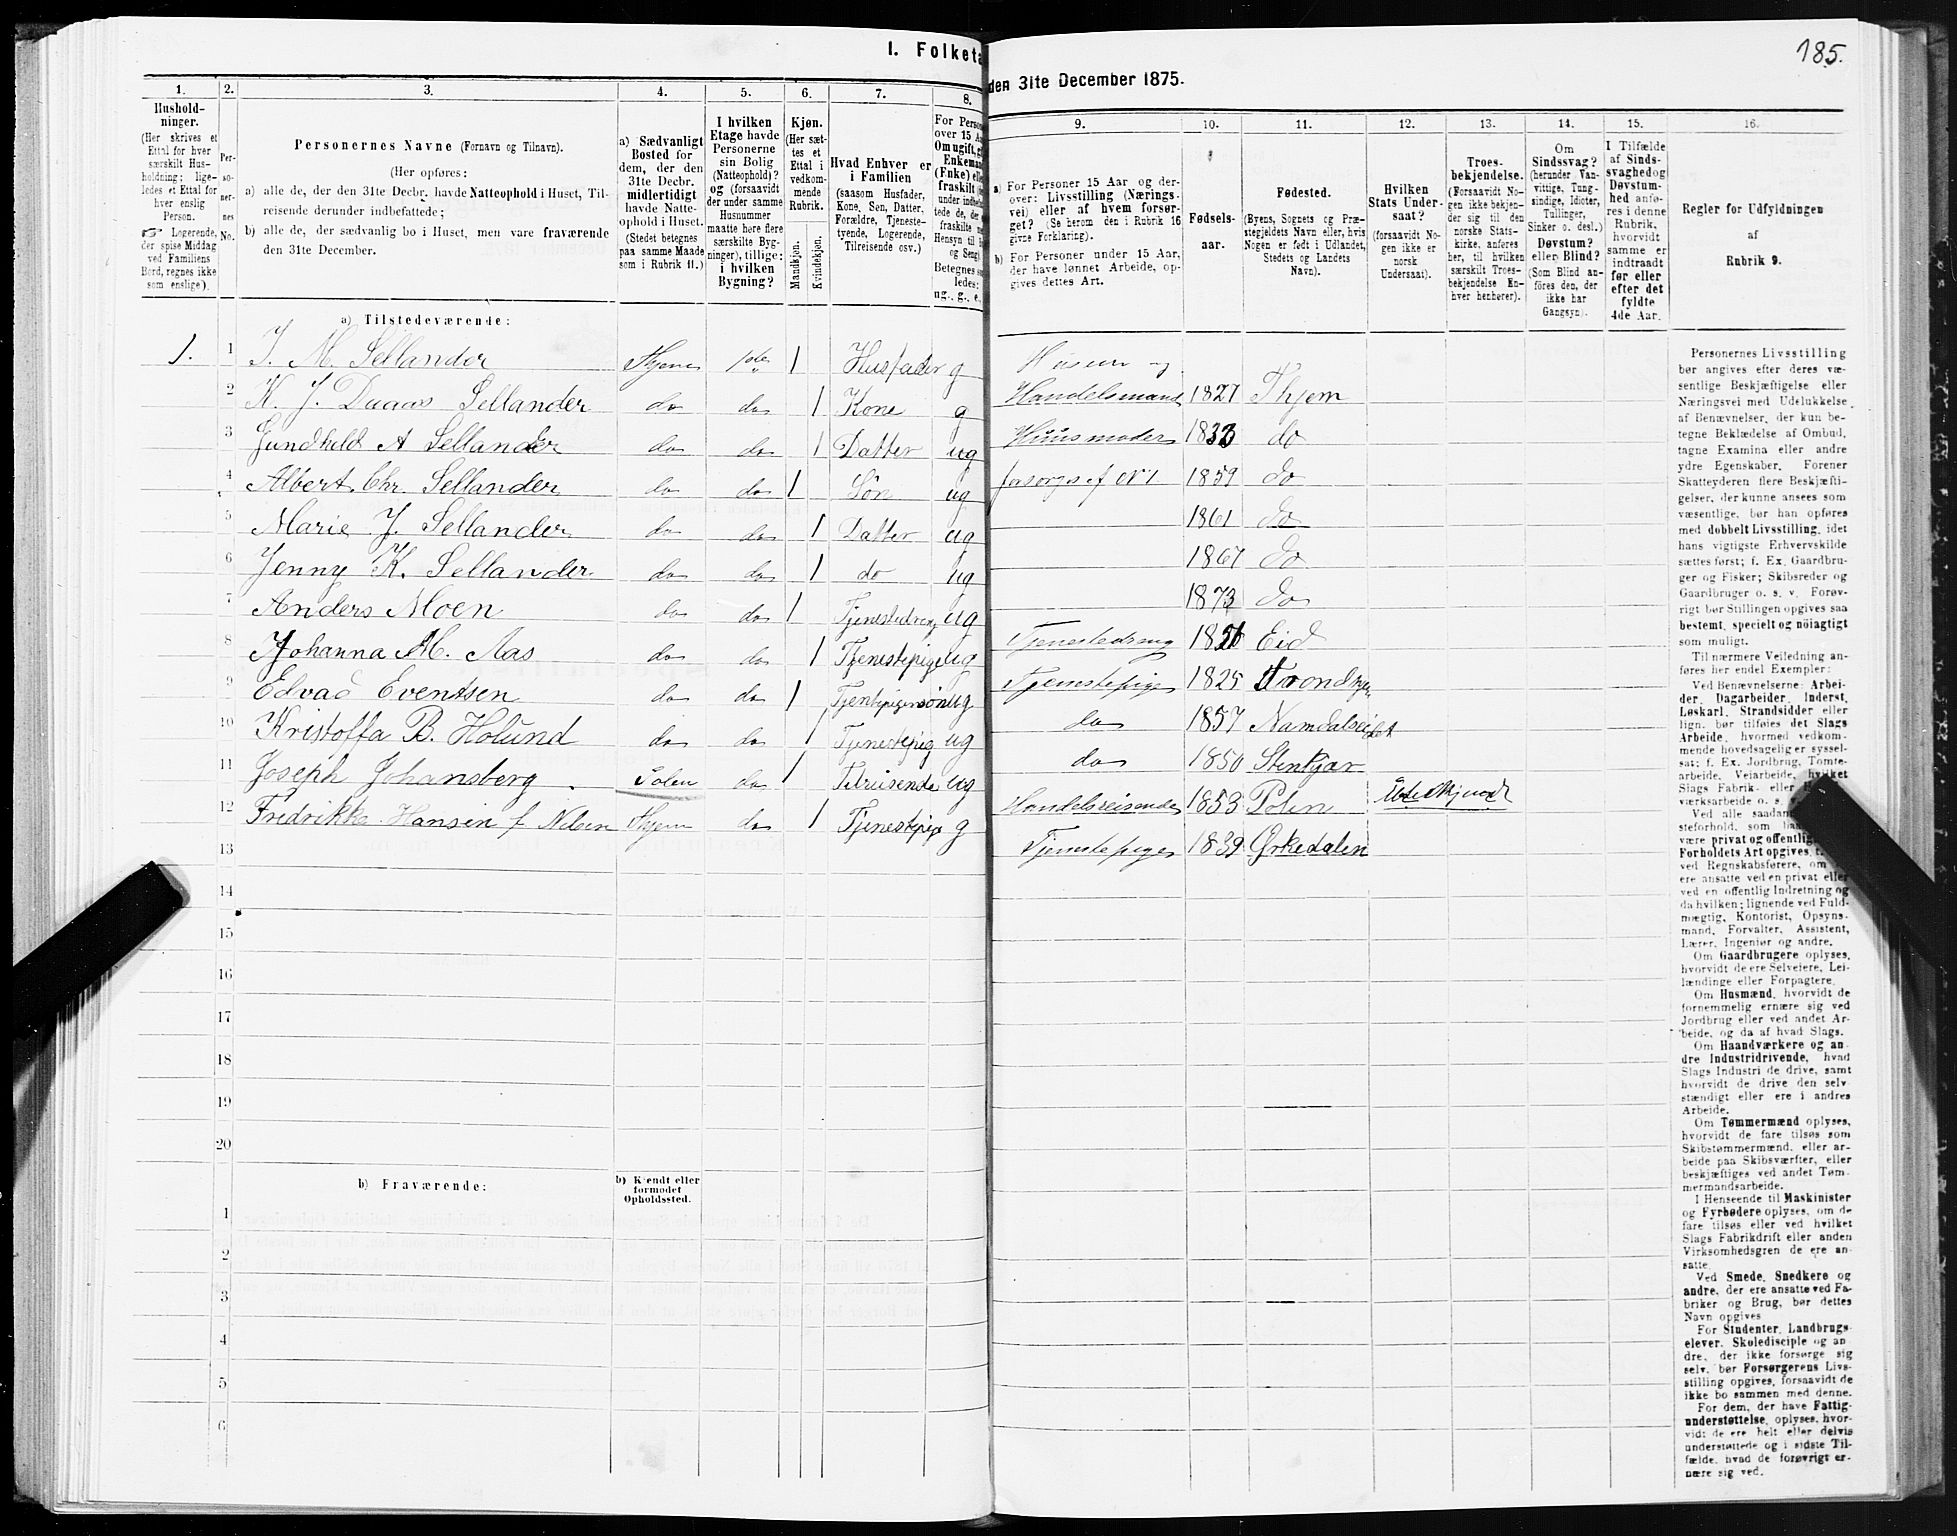 I. Folketæ
1.
2.
3.
4.
5.
6.
7.
8.
Hushold-
ninger.
(Her skrives et
Ettal for hver
særskilt Hus-
holdning; lige-
ledes et Ettal for
hver enslig
Person.
☞ Logerende,
der spise Middag
ved Familiens
Bord, regnes ikke
som enslige).
Per-
so-
ner-
nes
No.
Personernes Navne (Fornavn og Tilnavn).
(Her opføres:
a) alle de, der den 31te Decbr. havde Natteophold i Huset, Til-
reisende derunder indbefattede;
b) alle de, der sædvanlig bo i Huset, men vare fraværende
den 31te December.
a) Sædvanligt
Bosted for
dem, der den
31te Decbr.
midlertidigt
havde Natte-
ophold i Huset.
(Stedet betegnes
paa samme Maade
som i Rubrik 11.)
I hvilken
Etage havde
Personerne
sin Bolig
(Natteophold)?
og (forsaavidt
der under samme
Husnummer
maatte høre flere
særskilte Byg-
ninger), tillige:
i hvilken
Bygning?
Kjøn.
(Her sæt-
tes et
Ettal i
vedkom-
mende
Rubrik.
Mandkjøn.
Kvindekjøn.
Hvad Enhver er
i Familien
(saasom Husfader,
Kone, Søn, Datter,
Forældre, Tjeneste-
tyende, Logerende,
Tilreisende osv.)
For Person
over 15 A
Om ugift, g
Enkemand
(Enke) elle
fraskilt
under indbe
tede de, de
fraskilte
Hensyn til
og Seng
Betegnes s
ledes:
ug., g., e.,
a) Tilstedeværende:
1. 1 J. M. Sellander Thjem 1ste 1 Husfader g
2 K. J. Daaas Sellander do do 1 Kone g
3 Gundhild A Sellander do do 1 Datter ug
4 Albert Chr. Sellander do do 1 Søn ug
5 Marie J. Sellander do do 1 Datter ug
6 Jenny K. Sellander do do 1 do ug
7 Anders Moen do do 1 Tjenestedreng ug
8 Johanna M. Aas do do 1 Tjenestepige ug
9 Edvad Eventsen do do 1 ug
10 Kristoffa B. Holund do do 1 Tjenestepig ug
11 Joseph Johansberg Polen do 1 Tilreisende ug
12 Fredrikke Hansen f. Nilsen Thjem do 1 Tjenestepige g
13
14
15
16
17
18
19
20
b) Fraværende:
b) Kjendt eller
formodet
Opholdssted.
1
2
3
4
5
6
185.
den 31te December 1875.
9.
10.
11.
12.
13.
14.
15.
16.
a) For Personer 15 Aar og der-
over: Livsstilling (Nærings-
vei) eller af hvem forsør-
get? (Se herom den i Rubrik 16
givne Forklaring).
b) For Personer under 15 Aar,
der have lønnet Arbeide, op-
gives dettes Art.
Fødsels-
aar.
Fødested.
(Byens, Sognets og Præ-
stegjeldets Navn eller, hvis
Nogen er født i Udlandet,
Stedets og Landets
Navn).
Hvilken
Stats Under-
saat?
(forsaavidt No-
gen ikke er
norsk
Undersaat).
Troes-
bekjendelse.
(Forsaavidt No-
gen ikke bekjen-
der sig til den
norske Stats-
kirke, anføres
her, til hvilken
særskilt Troes-
bekjendelse En-
hver henhører).
Om
Sindssvag?
(herunder Van-
vittige, Tung-
sindige, Idioter,
Tullinger,
Sinker o. desl.)
Døvstum?
eller Blind?
(Som Blind an-
føres den, der
ikke har
Gangsyn).
I Tilfælde
af Sinds-
svaghed og
Døvstum-
hed anfø-
res i denne
Rubrik,
hvorvidt
samme er
indtraadt
før eller
efter det
fyldte
4de Aar.
Regler for Udfyldningen
af
Rubrik 9.
Handelsmand 1827 Thjem
Huusmoder 1833 do
forsørges af No 1 1859 do
1861 do
1867 do
1873 do
Tjenestedreng Eid
Tjenestepige 1825 Trondhjem
do 1857 Namdalseidet
do 1850 Stenkjær
Handelsreisende 1853 Polen
Tjenestepige 1839 Ørkedalen
Personernes Livsstilling
bør angives efter deres væ-
sentlige Beskjæftigelse eller
Næringsvei med Udelukkelse
af Benævnelser, der kun be-
tegne Beklædelse af Ombud,
tagne Examina eller andre
ydre Egenskaber. Forener
Skatteyderen flere Beskjæfti-
gelser, der kunne ansees som
væsentlige, bør han opføres
med dobbelt Livsstilling, idet
hans vigtigste Erhvervskilde
sættes først; f. Ex. Gaardbru-
ger og Fisker; Skibsreder og
Gaardbruger o. s. v. Forøv-
rigt bør Stillingen opgives saa
bestemt, specielt og nöiagtigt
som muligt.
Til nærmere Veiledning an-
føres her endel Exempler:
Ved Benævnelserne: Arbei-
der, Dagarbeider, Inderst,
Løskarl, Strandsidder eller
lign. bør tilføies det Slags
Arbeide, hvormed vedkom-
mende hovedsagelig er syssel-
sat; f. Ex. Jordbrug, Tomte-
arbeide, Veiarbeide, hvilket
Slags Fabrik- eller
værksarbeide o. s.
Ved alle saadan
steforhold, som
være privat og offentlig
Forholdets Art opgives,
ved Regnskabsførere, om
ere ansatte ved en privat eller
ved en offentlig Indretning og
da hvilken; lignende ved Fuld-
mægtig, Kontorist, Opsyns-
mand, Forvalter, Assistent,
Lærer, Ingeniør og andre.
Om Gaardbrugere oplyses,
hvorvidt de ere Selveiere, Lei-
lændinge eller Forpagtere.
Om Husmænd, hvorvidt de
fornemmelig ernære sig ved
Jordbrug eller ved andet Ar-
beide, og da af hvad Slags.
Om Haandværkere og an-
dre Industridrivende, hvad
Slags Industri de drive, samt
hvorvidt de drive den selv-
stændigt eller ere i andres
Arbeide.
Om Tømmermænd oplyses,
hvorvidt de fare tilsøs som
Skibstømmermænd, eller ar-
beide paa Skibsværfter, eller
beskjæftiges ved andet Tøm-
mermandsarbeide.
I Henseende til Maskinister
og Fyrbødere oplyses, om de
fare tilsøs eller ved hvilket
Slags Fabrikdrift eller anden
Virksomhedsgren de ere an-
satte.
Ved Smede, Snedkere og
andre, der ere ansatte ved Fa-
briker og Brug, bør dettes
Navn opgives
For Studenter, Landbrugs-
elever, Skoledisciple og an-
dre, der ikke forsørge sig
selv, bør Forsørgerens Livs-
stilling opgives, forsaavidt de
ikke bo sammen med denne.
For dem, der have Fattig-
understøttelse, oplyses, hvor-
vidt de ere helt eller delvis
understøttede og i sidste Til-
fælde, hvad de forøvrigt er-
nære sig ved.